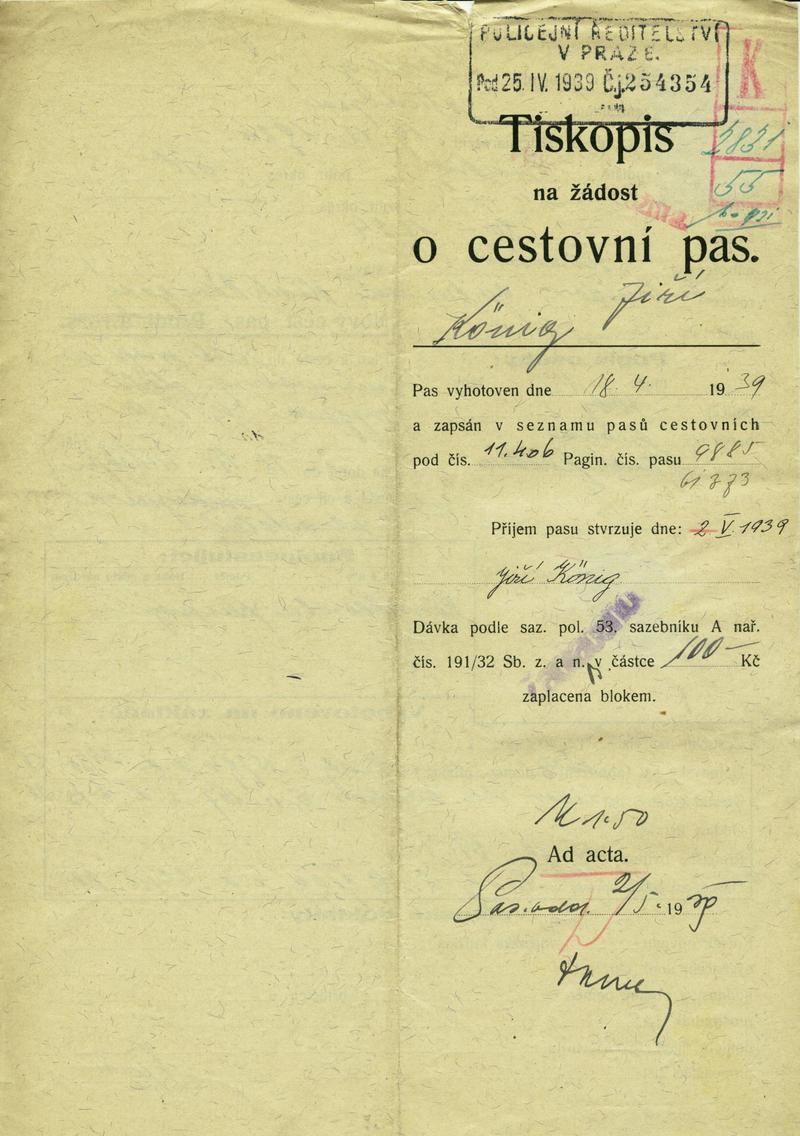 POLICEJNÍ ŘEDITELSTVÍ
V PRAZE.
Pod 25. IV. 1939 Čj. 254354
K
2831
55
Tiskopis
na žádost
o cestovní pas.
König Jiří
Pas vyhotoven dne 18. 4. 1939
a zapsán v seznamu pasů cestovních
pod čís. 11.406 Pagin. čís. pasu 9885
61373
Příjem pasu stvrzuje dne: 2 V. 1939
Jiří König
Dávka podle saz. pol. 53. sazebníku A nař.
čís. 191/32 Sb. z. a n. v částce 100 – Kč
zaplacena blokem.
1.50
Ad acta.
2/5. 1939